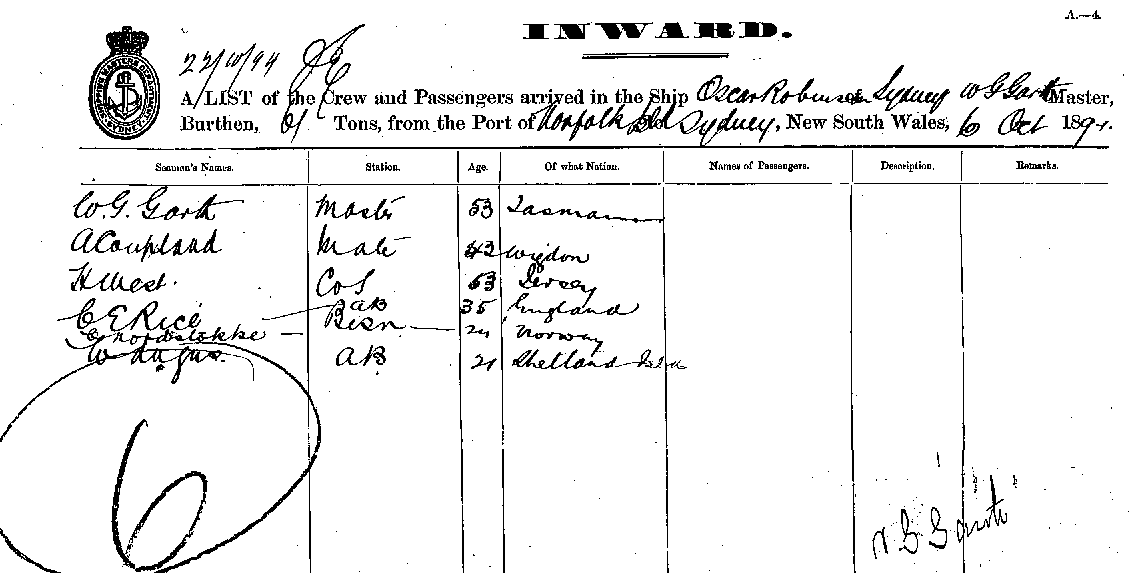 A.—4
INWARD.
22/10/94
A LIST of the Crew and Passengers arrived in the Ship Oscar Robinson Sydney W G Garth Master,
Burthen, 61 Tons, from the Port of Norfolk Isld Sydney, New South Wales, 6 Oct 1894.
Seaman's Names. Station. Age. Of what Nation. Names of Passengers. Description. Remarks.
W. G. Garth Master 53 Tasmania
A Coupland Mate 42 Wigdon
H West. Co S 53 Jersey
C E Rice AB 35 England
Nordstokke Bosn 24 Norway
W Angus. AB 21 Shetland Isla
6
W G Garth